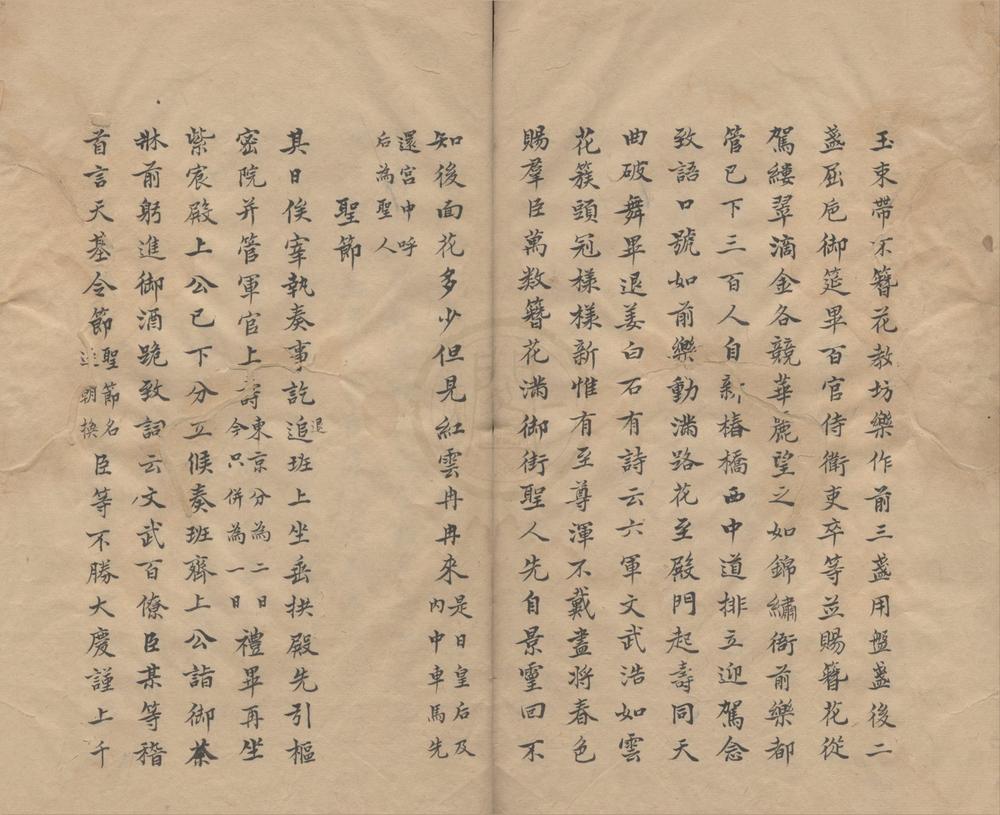 玉束帶不簪花教坊樂作前三盞用盤盞後二
盞屈卮御筵畢百官侍衛吏卒等並賜簪花從
駕縷翠滴金各競華麗望之如錦繡衙前樂都
管已下三百人自新椿橋西中道排立迎駕念
致語口號如前樂動滿路花至殿門起壽同天
曲破舞畢退姜白石有詩云六軍文武浩如雲
花簇頭冠樣樣新惟有至尊渾不戴盡將春色
賜羣臣萬數簪花滿御街聖人先自景靈回不
知後面花多少但見紅雲冉冉來是日皇后及
內中車馬先
還宮中呼
后為聖人
聖節
其日俟宰執奏事訖追退班上坐垂拱殿先引樞
密院并管軍官上壽東京分為二日
今只併為一日禮畢再坐
紫宸殿上公已下分立候奏班齊上公詣御茶
牀前躬進御酒跪致詞云文武百僚臣某等稽
首言天基令節聖節名
逐朝換臣等不勝大慶謹上千